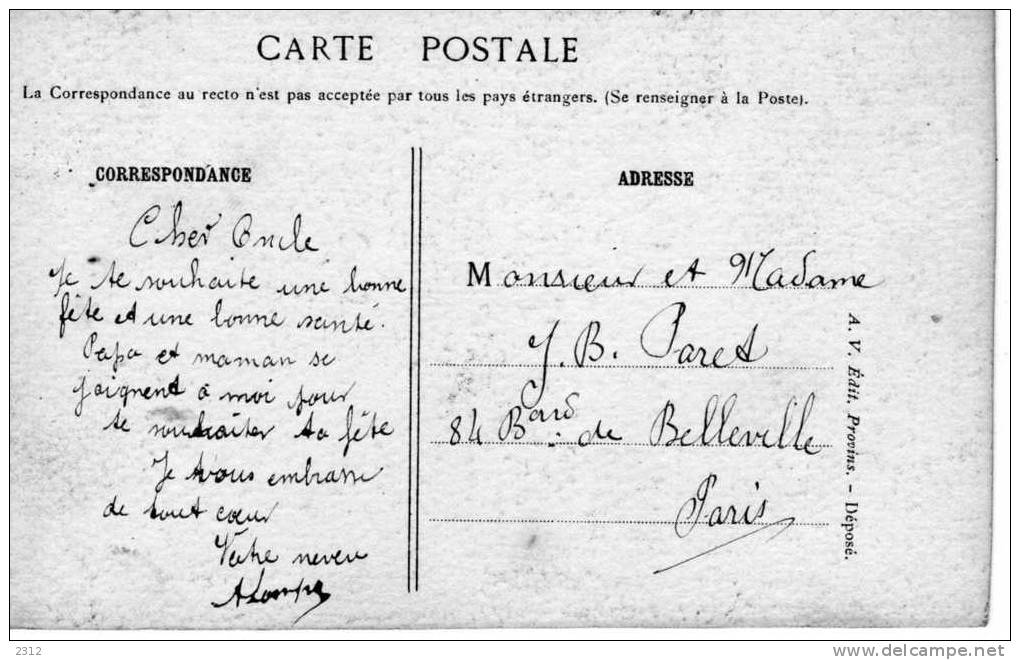 CARTE POSTALE
La Correspondance au recto n'est pas acceptée par tous les pays étrangers. (Se renseigner à la Poste).
CORRESPONDANCE
Cher Oncle
Je te souhaite une bonne
fête et une bonne santé.
Papa et maman se
joignent à moi pour
te souhaiter ta fête
Je vous embrasse
de tout cœur
Votre neveu
ADRESSE
Monsieur et Madame
J. B. Paret
84 Bard de Belleville
Paris
A. V. Édit. Provins. - Déposé.
2312
delcampe.net